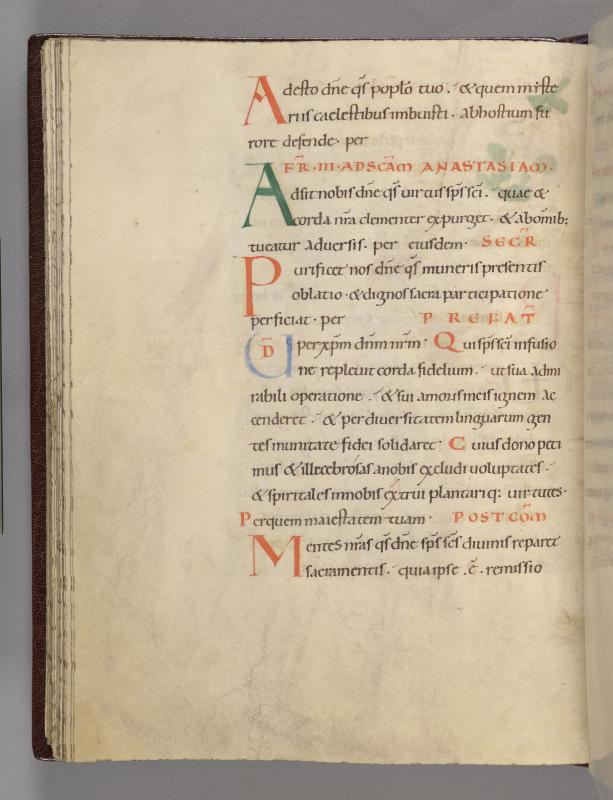 Adesto dñe q̃s poplo tuo. & quem miste
riis caelestibus imbuisti. ab hostium fu
rore defende. per
FR̃. III. AD SCÃM ANASTASIAM.
Adsit nobis dñe q̃s uirtus sp̃s sc̃i. quae &
corda nr̃a clementer expurget. & ab om̃ib;
tueatur aduersis. per eiusdem. SECR̃
Purificet nos dñe q̃s muneris presentis
oblatio. & dignos sacra participatione
perficiat. per PREFAT̃
UD̃ s per xp̃m dñm nr̃m. Qui sp̃s sc̃i infusio
ne repleuit corda fidelium. ut sua admi
rabili operatione. & sui amoris in eis ignem ac
cenderet. & per diuersitatem linguarum gen
tes in unitate fidei solidaret. Cuius dono peti
mus & illecebrosas a nobis excludi uoluptates.
& spiritales in nobis extrui plantariq: uirtutes.
Per quem maiestatem tuam. POSTCOM̃
Mentes nr̃as q̃s dñe sp̃s sc̃s diuinis reparet
sacramentis. quia ipse .ē. remissio